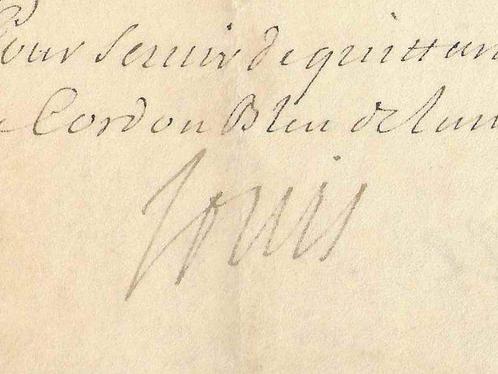 Pour Servir de quittan
Cordon Bleu de l'un
Louis